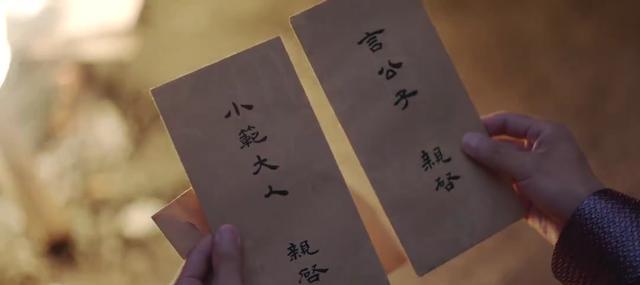 小範大人 親啓
言公子 親啓